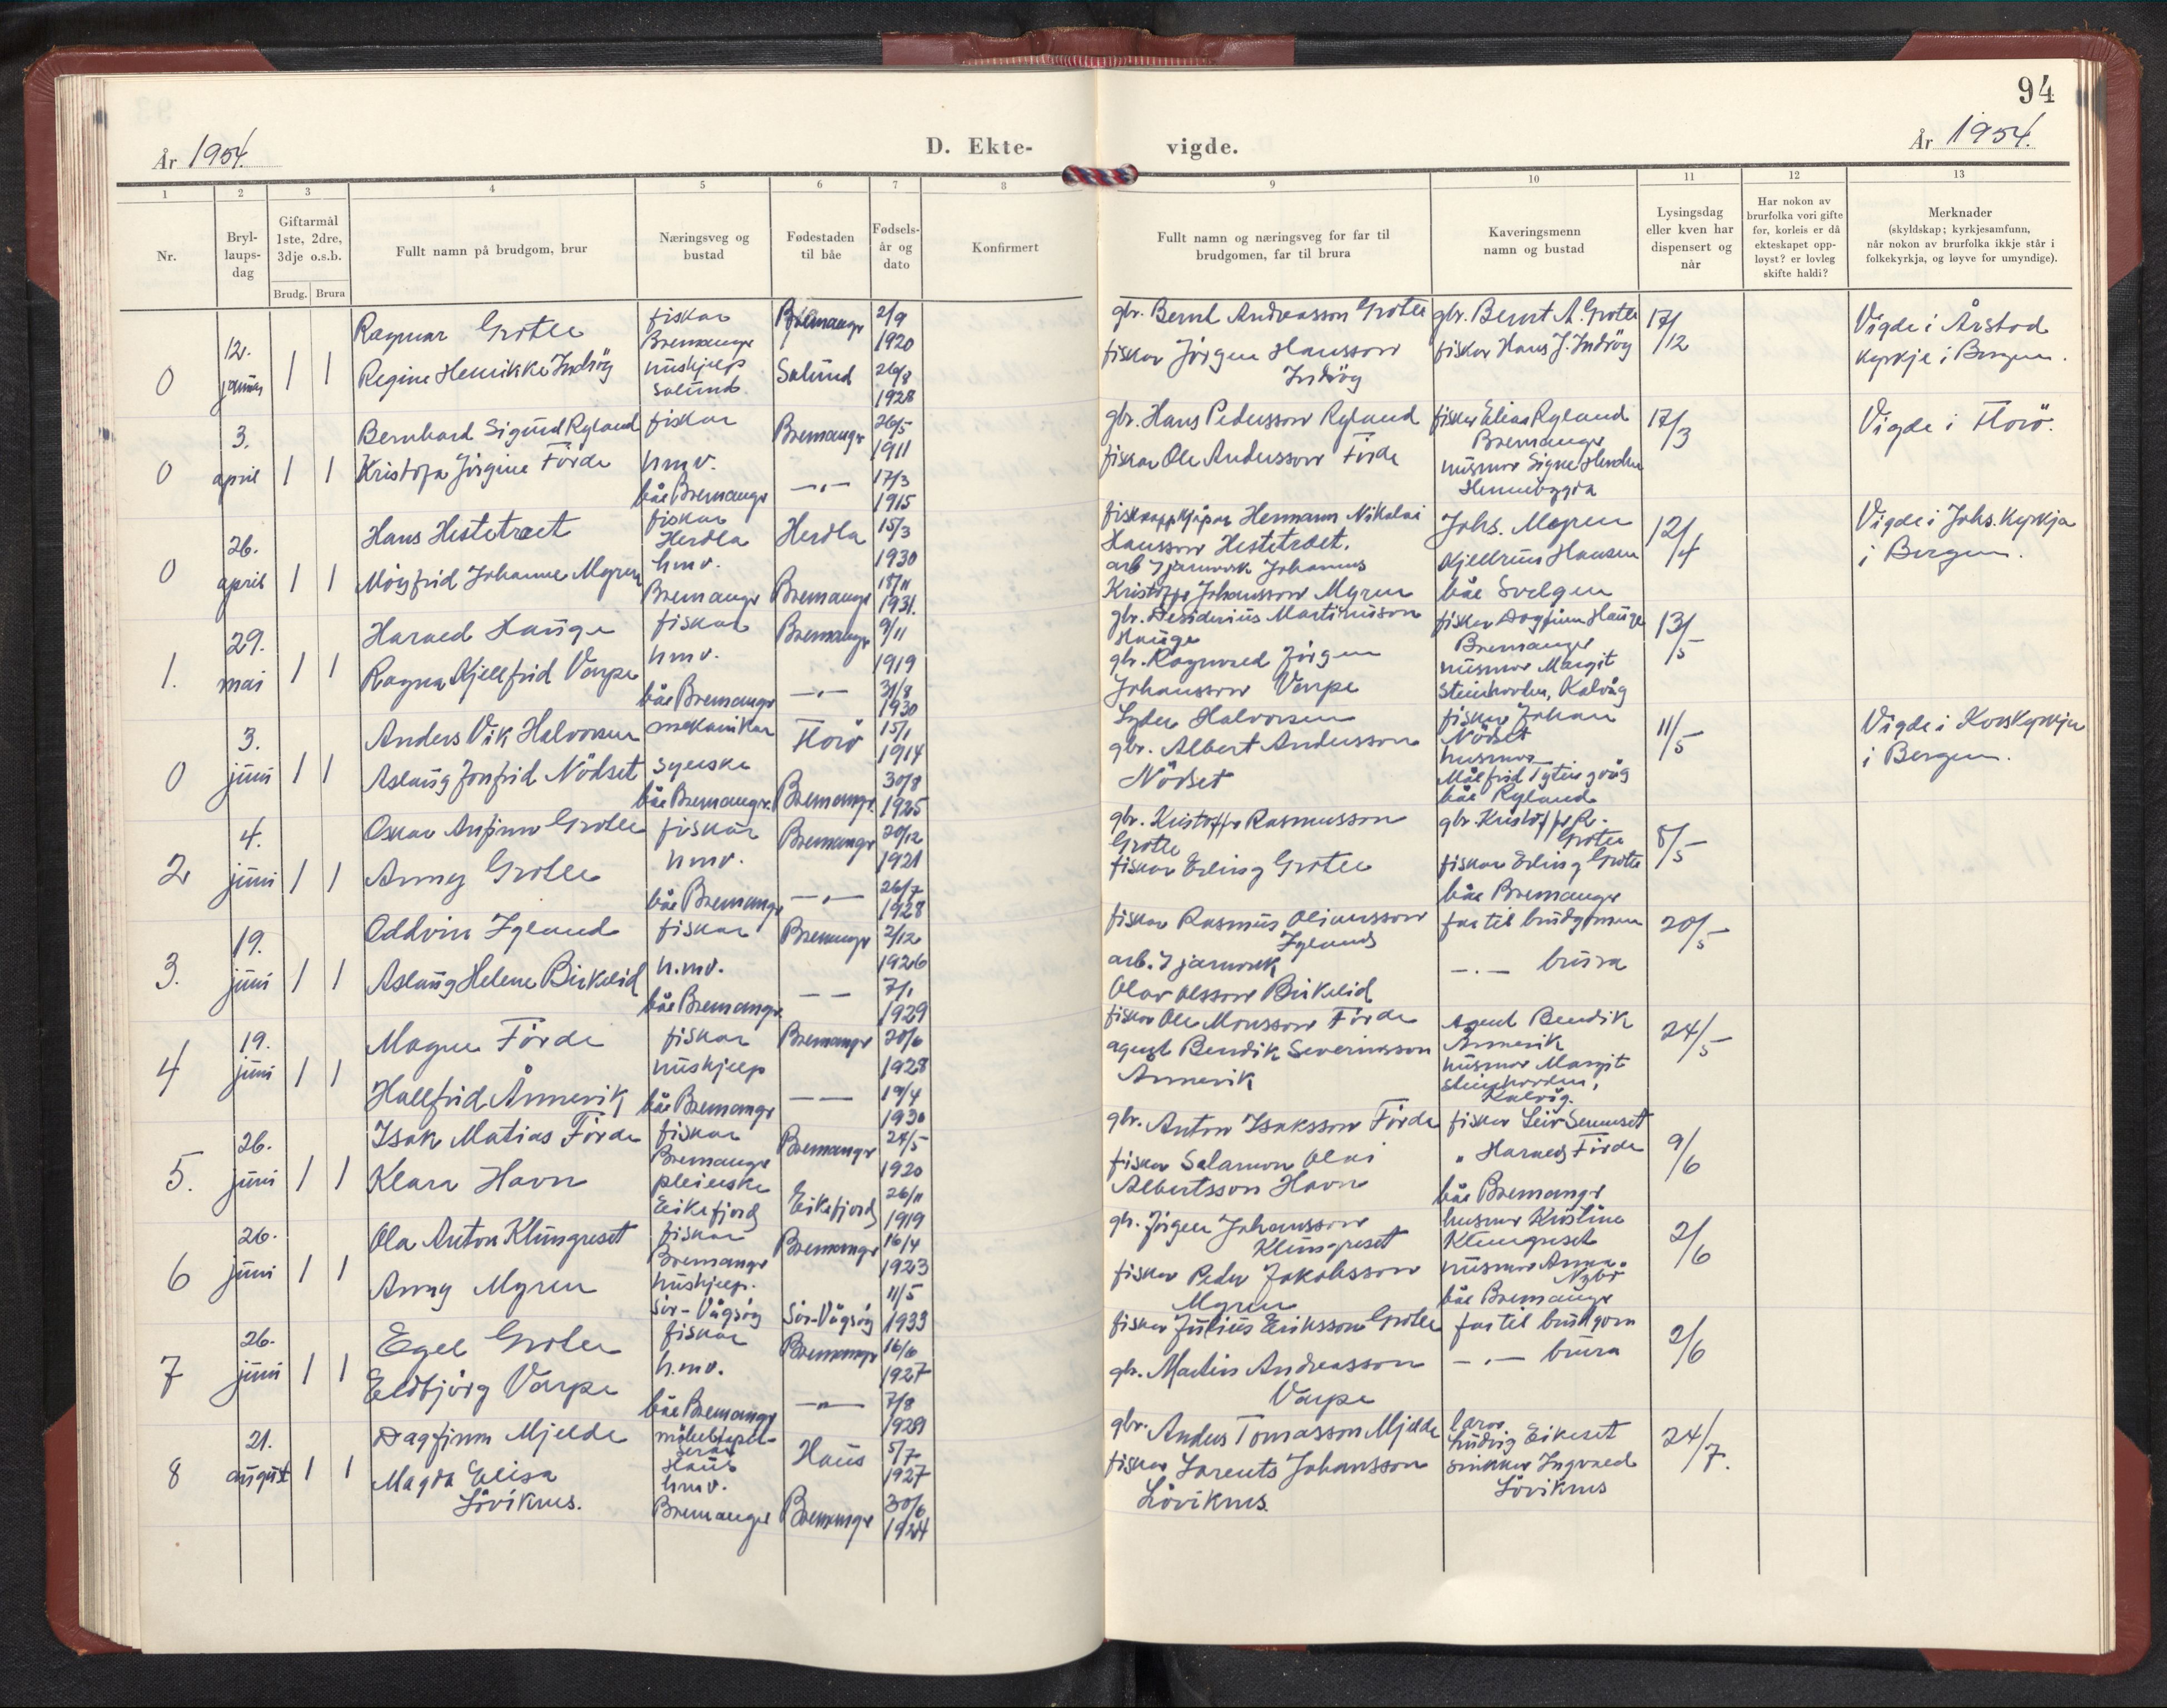 94
År 1954.
D. Ekte-
vigde.
År 1954.
1 2 3 4 5 6 7 8 9 10 11 12 13
Nr.
Bryl-
laups-
dag
Giftarmål
1ste, 2dre,
3dje o.s.b.
Brudg. Brura
Fullt namn på brudgom, brur
Næringsveg og
bustad
Fødestaden
til båe
Fødsels-
år og
dato
Konfirmert
Fullt namn og næringsveg for far til
brudgomen, far til brura
Kaveringsmenn
namn og bustad
Lysingsdag
eller kven har
dispensert og
når
Har nokon av
brurfolka vori gifte
for, korleis er då
ekteskapet opp-
løyst? er lovleg
skifte haldi?
Merknader
(skyldskap; kyrkjesamfunn,
når nokon av brurfolka ikkje står i
folkekyrkja, og løyve for umyndige).
0
12.
januar
1 1
Ragnar Grotle
Regine Henrikke Indröy
fiskar
Bremanger
hushjelp
Solund
Bremanger
Solund
2/9
1920
26/8
1928
gbr. Bernt Andreasson Grotle
fiskar Jörgen Hansson
Indröy
gbr. Bernt A. Grotle
fiskar Hans J. Indröy
17/12
Vigde i Årstad
kyrkje i Bergen.
0
3.
april
1 1
Bernhard Sigurd Ryland
Kristofa Jörgine Förde
fiskar
hmv.
båe Bremanger
Bremanger
—"—
26/5
1911
17/3
1915
gbr. Hans Pedersson Ryland
fiskar Ole Andersson Förde
fiskar Elias Ryland
Bremanger
husmor Signe
Hennebygda
17/3
Vigde i Florö.
0
26.
april
1 1
Hans Hestetræet
Möyfrid Johanne Myren
fiskar
Herdla
hmv.
Bremanger
Herdla
Bremanger
15/3
1930
18/11
1931.
fiskeoppkjöpar Hermann Nikolai
Hansson Hestetræet.
arb. i jarnverk Johannes
Kristoffer Johansson Myren
Johs. Myren
Kjellrun Hansen
båe Svelgen
12/4
Vigde i Johs. kyrkja
i Bergen.
1.
29.
mai
1 1
Harald Hauge
Ragna Kjellfrid Varpe
fiskar
hmv.
båe Bremanger
Bremanger
—"—
9/11
1919
31/8
1930
gbr. Desiderius Martinusson
Hauge
gbr. Ragnvald Jörgen
Johansson Varpe
fiskar Dagfinn Hauge
Bremanger
husmor Margit
Steinhovden, Kalvåg
13/5
0
3.
juni
1 1
Anders Vik Halvorsen
Aslaug Jonfrid Nödset
mekanikar
syerske
båe Bremanger.
Florö
Bremanger.
15/1
1914
30/8
1925
Lyder Halvorsen
gbr. Albert Andersson
Nödset
fiskar Johan
Nödset
husmor
Målfrid Tytingvåg
båe Ryland
11/5
Vigde i Korskyrkja
i Bergen.
2
4.
juni
1 1
Oskar Arfinn Grotle
Anny Grotle
fiskar
hmv.
båe Bremanger
Bremanger
—"—
20/12
1921
26/7
1928
gbr. Kristoffer Rasmusson
Grotle
fiskar Erling Grotle
gbr. Kristoffer R.
Grotle
fiskar Erling Grotle
båe Bremanger
8/5
3.
19.
juni
1 1
Oddvin Igland
Aslaug Helene Birkelid
fiskar
h.mv.
båe Bremanger
Bremanger
— —
2/12
1926
7/1
1929
fiskar Rasmus Oliansson
Igland
arb. i jarnverk
Olav Olsson Birkelid
far til brudgomen
—"— brura
20/5
4
19.
juni
1 1
Magne Förde
Hallfrid Årnevik
fiskar
hushjelp
båe Bremanger
Bremanger
— —
20/6
1928
19/4
1930
fiskar Ole Monsson Förde
agent Bendik Severinsson
Årnevik
Agent Bendik
Årnevik
husmor Margit
Steinhovden,
Kalvåg.
24/5
5.
26.
juni
1 1
Isak Matias Förde
Klara Havn
fiskar
Bremanger
pleierske
Eikefjord
Bremanger
Eikefjord
24/5
1920
26/11
1919
gbr. Anton Isaksson Förde
fiskar Salamon Olai
Albertsson Havn
fiskar Leiv Seneset
" Harald Förde
båe Bremanger
9/6
6
26.
juni
1 1
Ola Anton Klungreset
Anny Myren
fiskar
Bremanger
hushjelp.
Sör-Vågsöy
Bremanger
Sör-Vågsöy
16/4
1923
11/5
1933
gbr. Jörgen Johansson
Klungreset
fiskar Peder Jakobsson
Myren
husmor Kristine
Klungreset
husmor Anna
Nybö
båe Bremanger
2/6
7
26.
juni
1 1
Egil Grotle
Eldbjörg Varpe
fiskar
h.mv.
båe Bremanger
Bremanger
—"—
16/6
1927
7/8
1929
fiskar Julius Eriksson Grotle
gbr. Martin Andreasson
Varpe
far til brudgom
—"— brura
2/6
8
21.
august
1 1
Dagfinn Mjelde
Magda Elisa
Löviknes.
möbeltapet-
serar
Haus
hmv.
Bremanger
Haus
Bremanger
5/7
1927
30/6
1924
gbr. Anders Tomasson Mjelde
fiskar Lorents Johansson
Löviknes.
lærar
Ludvig Eikeset
snikkar Ingvald
Löviknes
24/7.